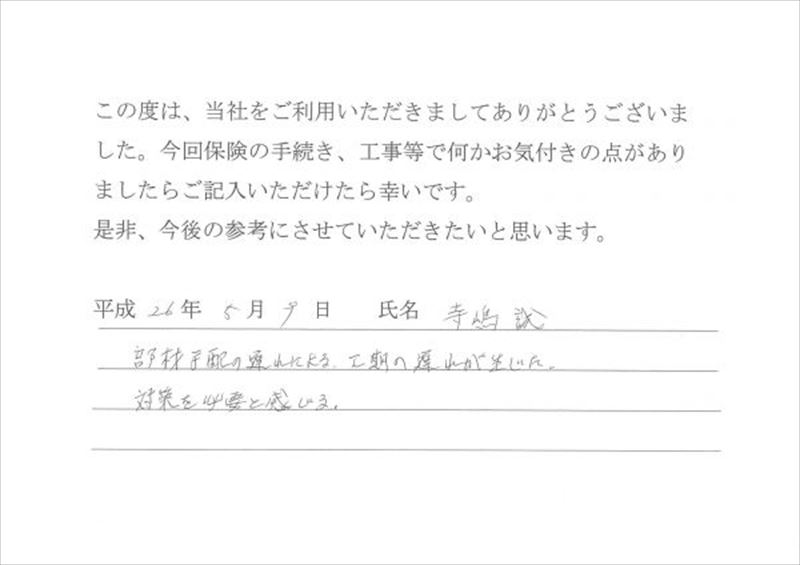 この度は、当社をご利用いただきましてありがとうございま
した。今回保険の手続き、工事等で何かお気付きの点があり
ましたらご記入いただけたら幸いです。
是非、今後の参考にさせていただきたいと思います。
平成 26 年 5 月 9 日 氏名 寺嶋 誠
部材手配の遅れによる 工期の遅れが生じた。
対策を必要と感じる。